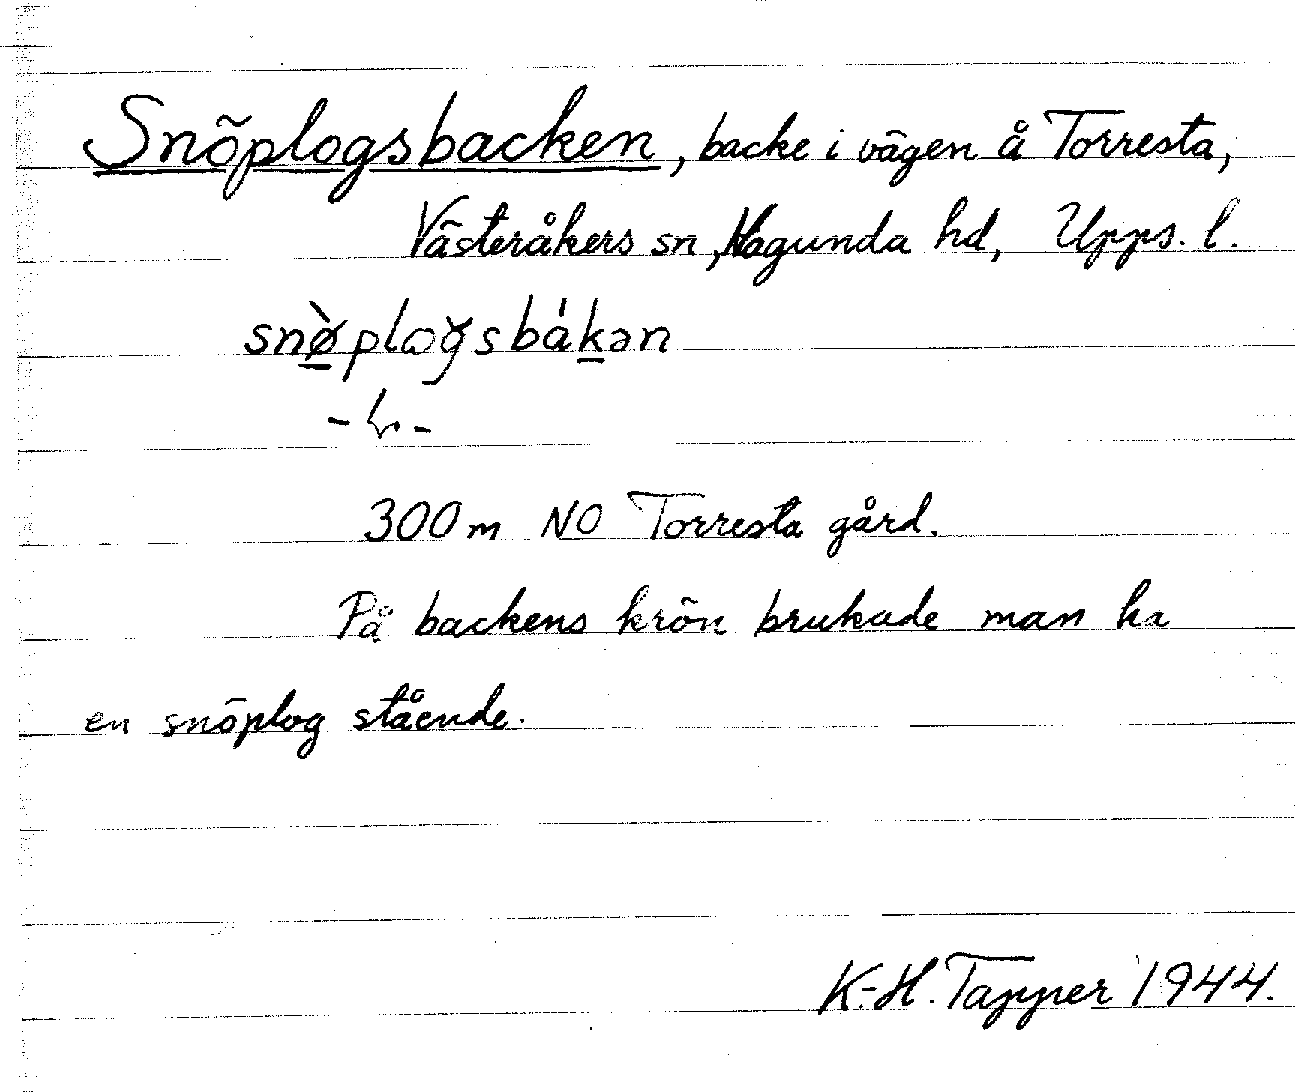 Snöplogsbacken, backe i vägen å Torresta,
Västeråkers sn, Hagunda hd, Upps. l.
snø̀plogsbákən
300 m NO Torresta gård.
På backens krön brukade man ha
en snöplog stående.
K-H. Tapper 1944.